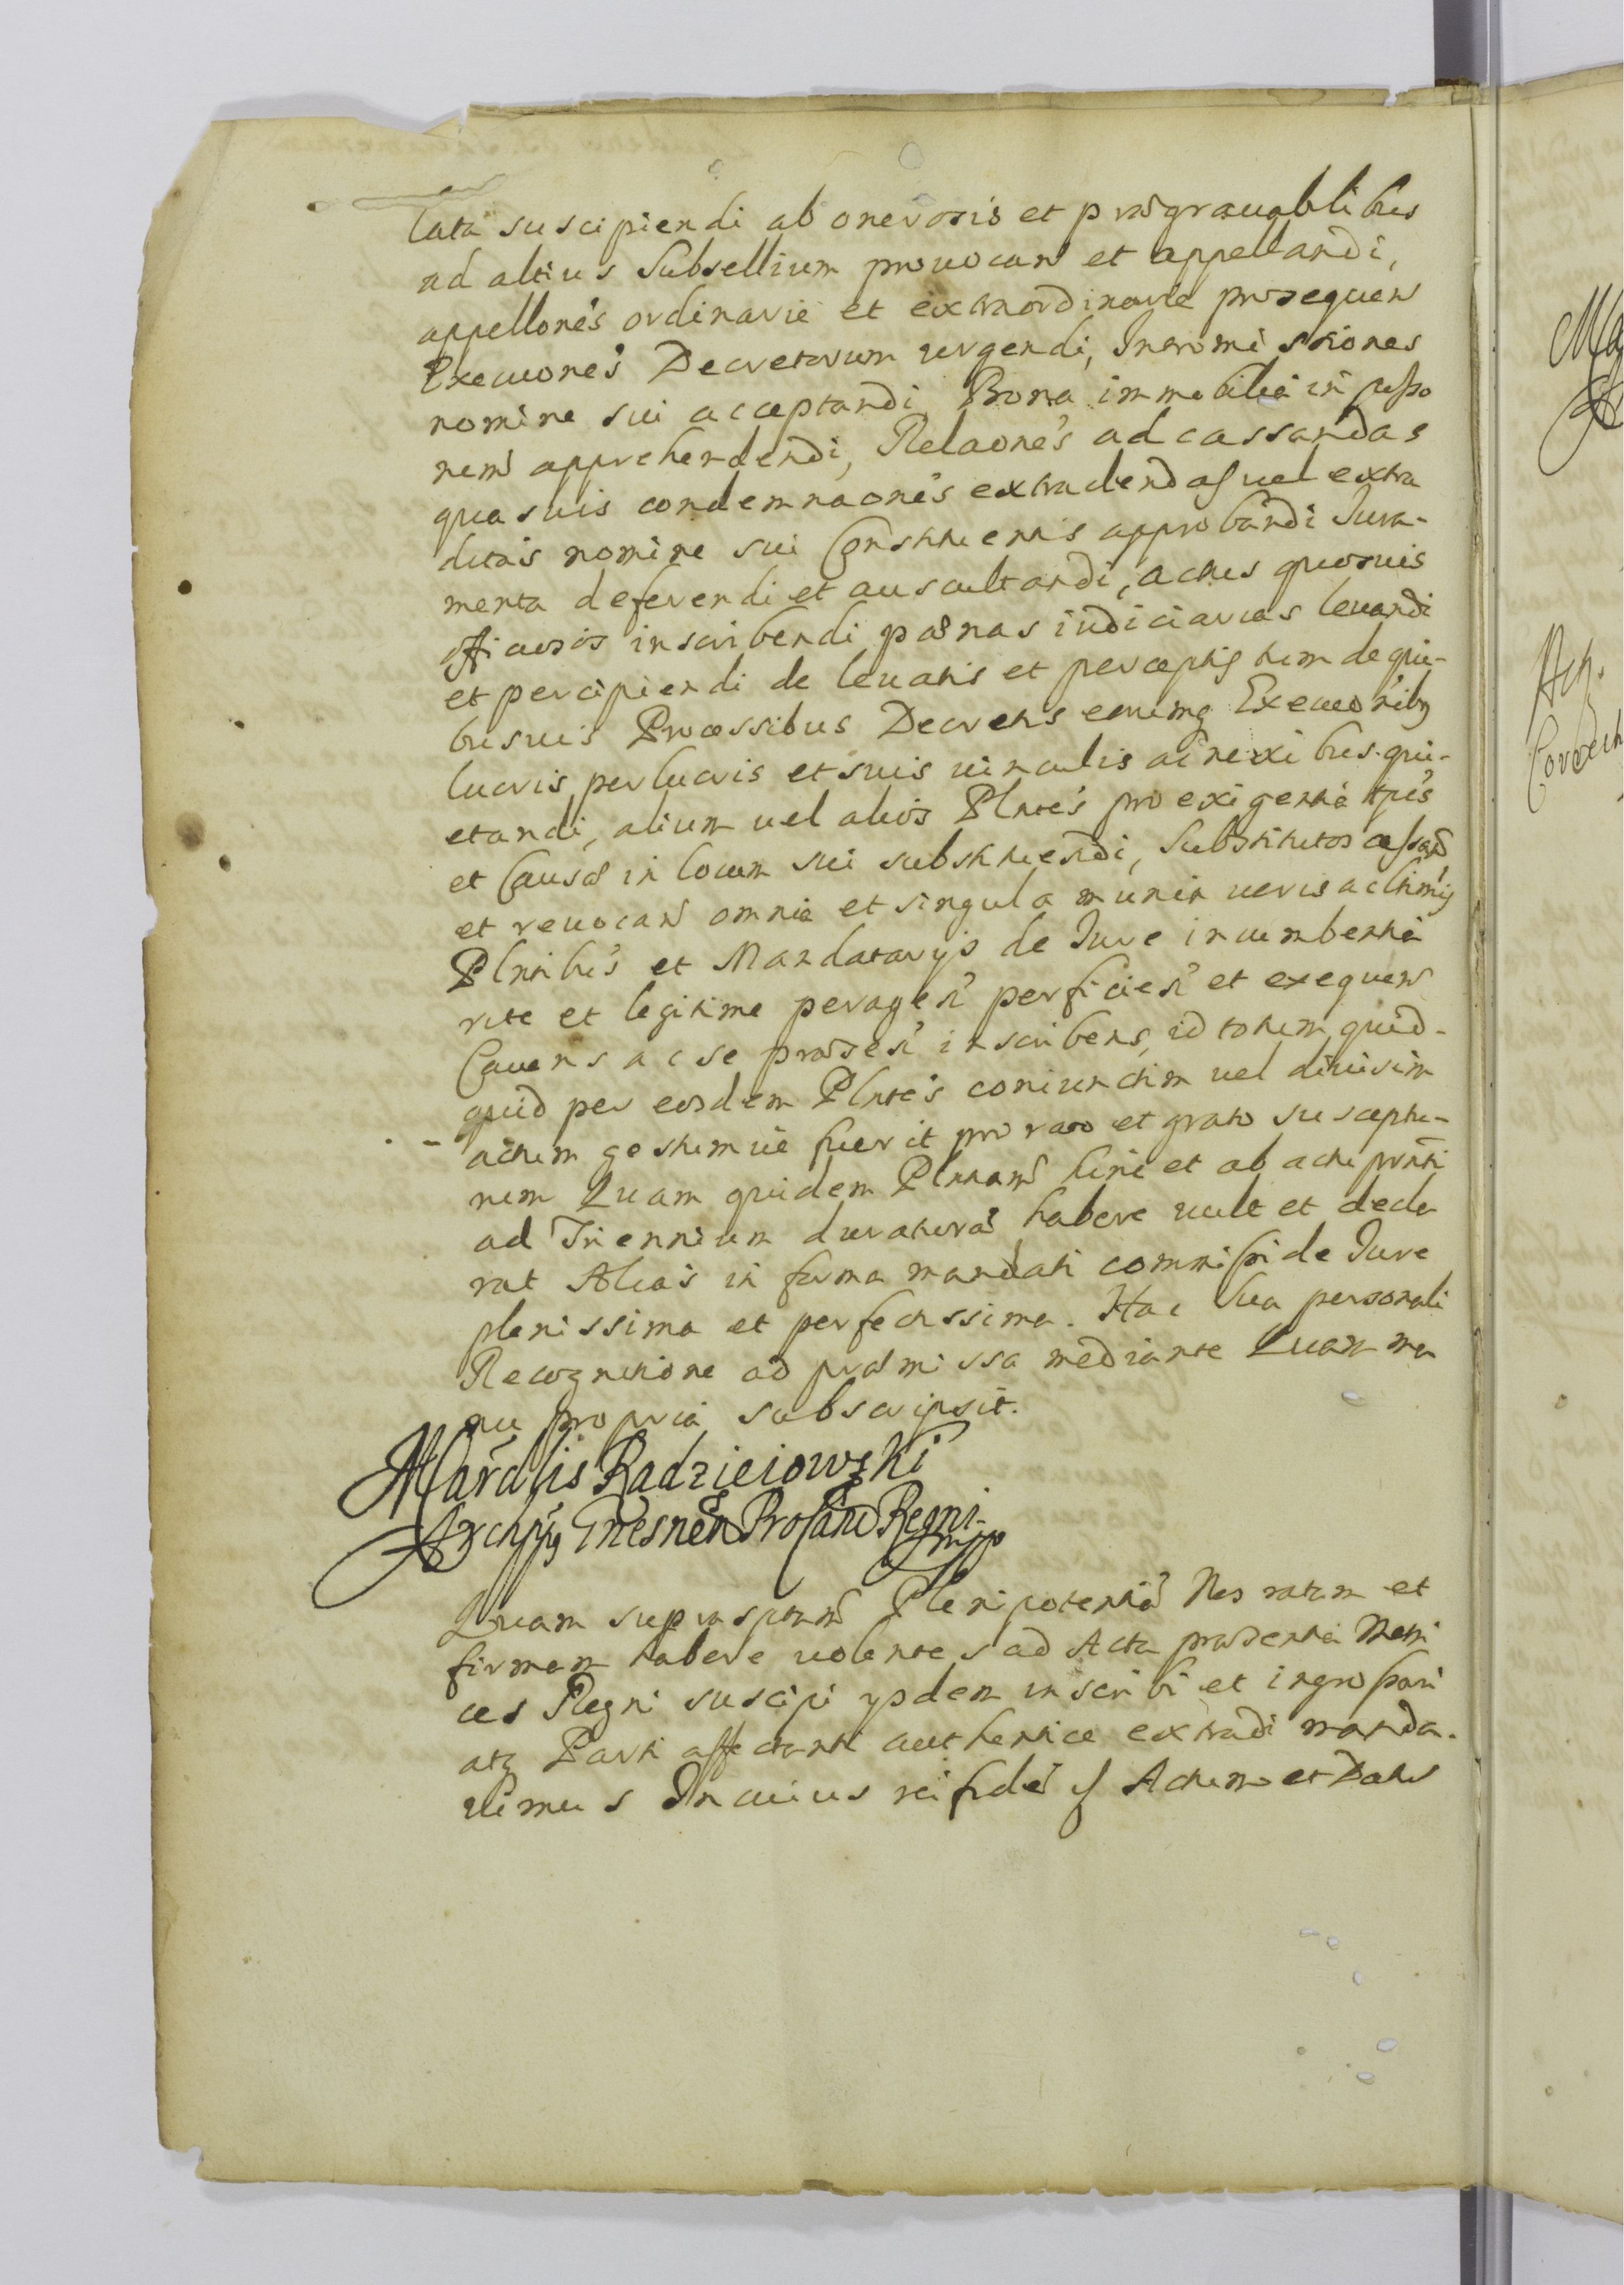 lata suscipiendi ab onerosis et prægrauablibus
ad altius Subsellium prouocan̄ et appellandi,
appellōnes ordinarie et extraordinarie prosequen̄
Execuōnes Decretorum urgendi, Intromissiones
nomine sui acceptandi Bona immobilia in poſſo
nem apprehendendi, Relaōnes ad cassandas
quasuis condemnaōnes extradendas uel extra
ditas nomine sui Constituentis approbandi Iura-
menta deferendi et auscultandi, actus quosuis
officiosos inscribendi pœnas iudiciarias leuandi
et percipiendi de leuatis et perceptis tum de qui-
busuis Processibus Decretis eorumq Execuōnibq
lucris perlucris et suis uinculis ac nexibus qui-
etandi, alium uel alios Plntes pro exigentia tp̄is
et Causæ in locum sui substituendi, Substitutos ceſſan̄
et reuocan̄ omnia et singula munia ueris ac ltimis
Plntibus et Mandatarijs de Iure incumbentia
rite et legitime peragen̄ perficien̄ et exequen̄
Cauens ac se præsen̄ inscribens, id totum quid-
quid per eosdem Plntes coniunctim uel diuisim
actum gestumue fuerit pro rato et grato susceptu-
rum Quam quidem Plntiam hinc et ab actu prnti
ad Triennium duraturā habere uult et decla
rat Alias in forma mandati commiſſi de Iure
plenissima et perfectissima. Hac sua personali
Recognitione ad præmissa mediante Quam ma
nu propria subscripsit.
M Cardlis Radzieiowski
Archppus Gnesnen Prs Regni
mpp
Quam suprasptam Plenipotentiā Nos ratam et
firmam habere uolentes ad Acta præsentia Metri
ces Regni suscipi ysdem inscribi et ingroſſari
atq Parti affectanti authentice extradi manda-
uimus In cuius rei fidē Actum et Datus
Ma
A
Ach.